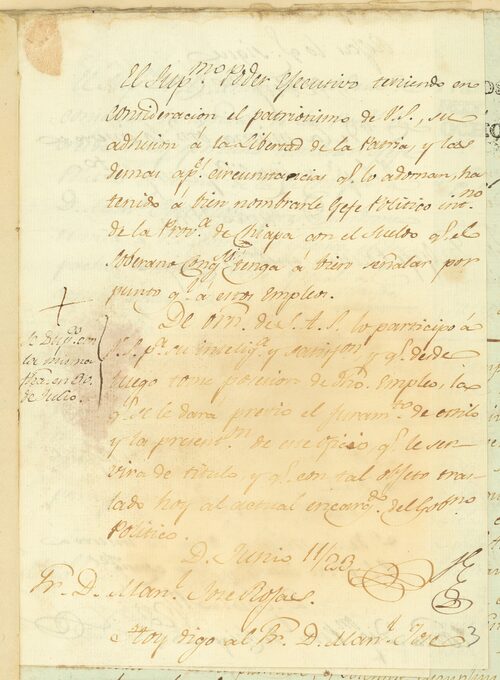 El Sup.mo Poder Ejecutivo teniendo en
consideracion el patriotismo de V.S., su
adhesion á la Libertad de la Patria, y las
demas ap.s circunstancias q.e lo adornan, ha
tenido á bien nombrarle Gefe Politico int.no
de la Prov.a de Chiapa con el sueldo q.e el
Soberano Cong.so tenga á bien señalar por
punto q.l á estos Empleos.
De orn. de S. A. S. lo participo á
V.S. p.a su intelig.a y satisf.on y q.e desde
luego tome posesion de dho. Empleo, la
q.e se le dara previo el juram.to de estilo
y la present.on de este oficio, q.e le ser-
vira de titulo, y q.e con tal objeto tras-
lado hoy al actual encarg.do del Gob.no
Politico.
D. Junio 11/823
Sr. D. Man.l Jose Rojas.
Hoy digo al Sr. D. Man.l Jose
3
con
la misma
fha. en 30.
de Julio.